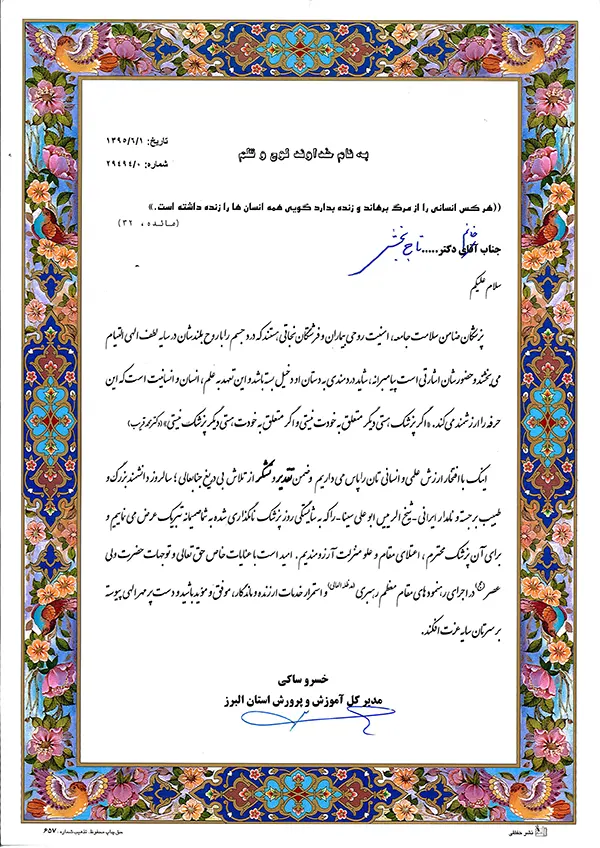 به نام خداوند لوح و قلم
تاریخ: ۱۳۹۵/۶/۱
شماره: ۲۹۴۹۴/۰
((هر کس انسانی را از مرگ برهاند و زنده بدارد گویی همه انسان ها را زنده داشته است.»
(مائده، ۳۲)
جناب آقای دکتر..... خانم تاج بخش
سلام علیکم
پزشکان ضامن سلامت جامعه، امنیت روحی بیماران و فرشتگان نجاتی هستند که درد جسم را با روح بلندشان در سایه لطف الهی التیام
می بخشند و حضورشان اشارتی است پیامبرانه، شاید دردمندی به دستان او دخیل بسته باشد و این تعهد به علم، انسان و انسانیت است که این
حرفه را ارزشمند می کند. «اگر پزشک هستی دیگر متعلق به خودت نیستی و اگر متعلق به خودت هستی دیگر پزشک نیستی» (دکتر محمد قریب)
اینک با افتخار ارزش علمی و انسانی تان را پاس می داریم و ضمن تقدیر و تشکر از تلاش بی دریغ جنابعالی؛ سالروز دانشمند بزرگ و
طبیب برجسته و نامدار ایرانی - شیخ الرییس ابوعلی سینا - را که به شایستگی روز پزشک نامگذاری شده به شما صمیمانه تبریک عرض می نماییم و
برای آن پزشک محترم، اعتلای مقام و علو منزلت آرزومندیم. امید است با عنایات خاص حق تعالی و توجهات حضرت ولی
عصر (عج) در اجرای رهنمودهای مقام معظم رهبری (مدظله العالی) و استمرار خدمات ارزنده و ماندگار، موفق و موید باشید و دست پر مهر الهی پیوسته
بر سرتان سایه عزت افکند.
خسرو ساکی
مدیر کل آموزش و پرورش استان البرز
نشر حفظی
حق چاپ محفوظ. تذهیب شماره: ۶۵۷